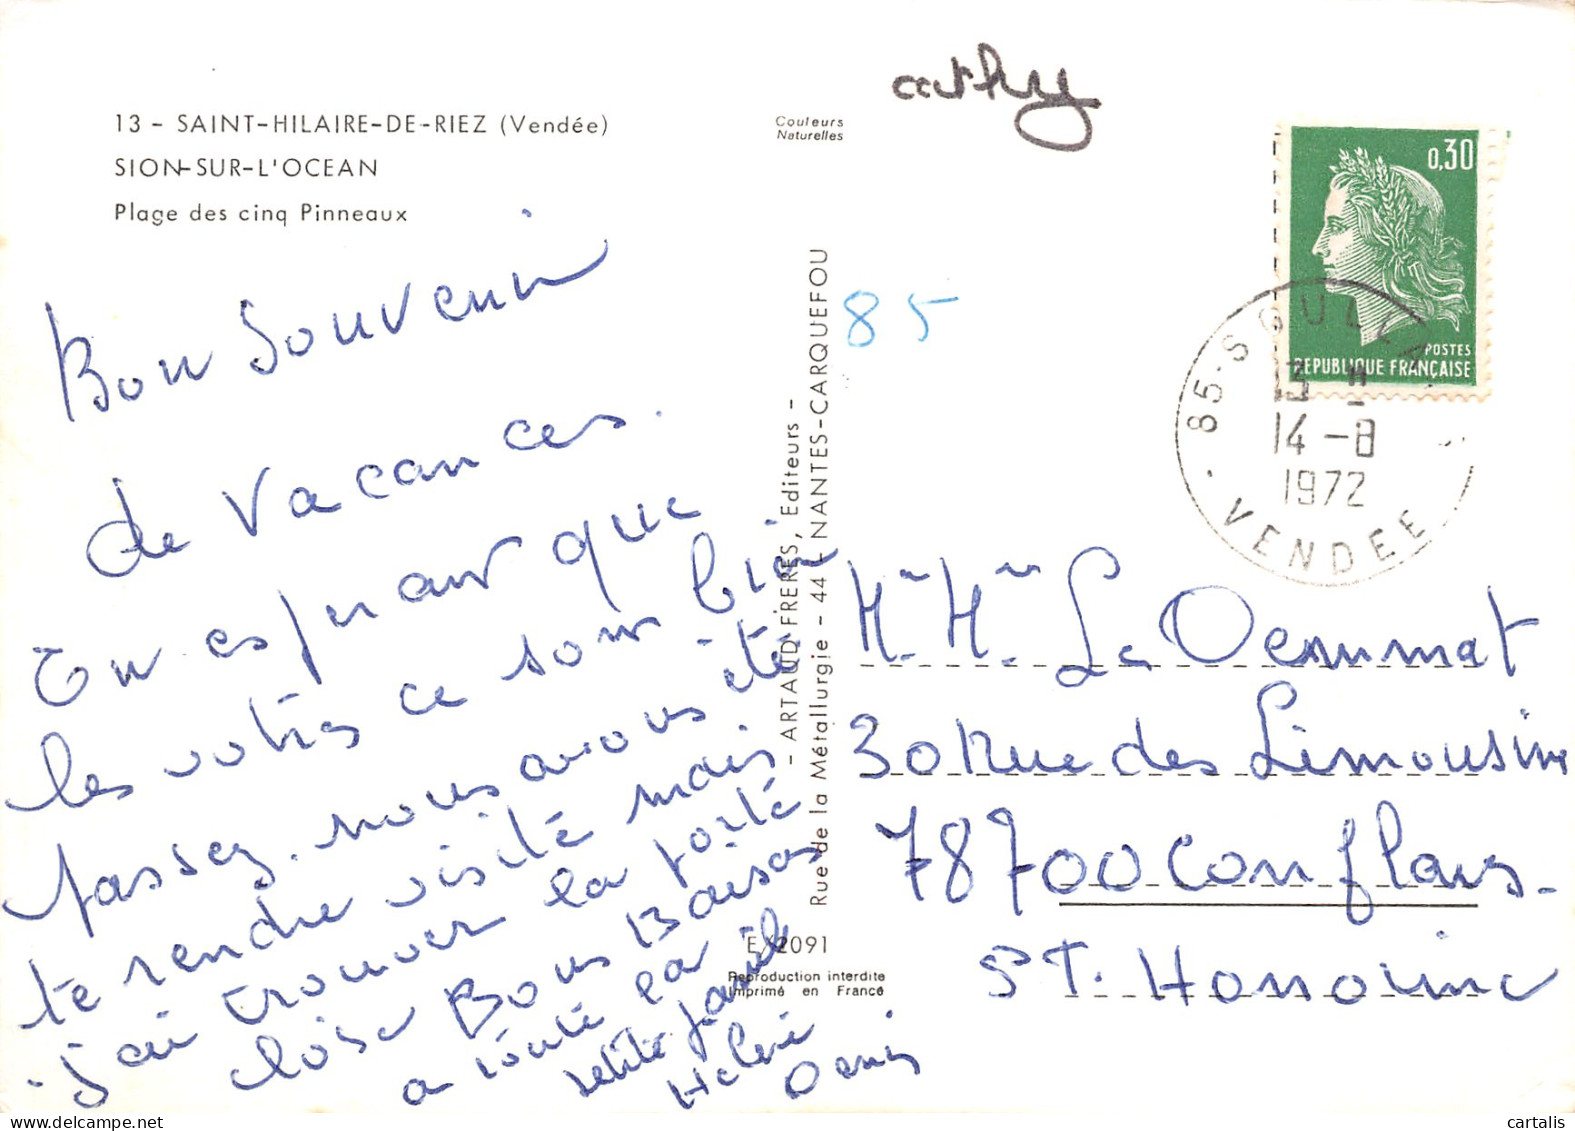 13 - SAINT-HILAIRE-DE-RIEZ (Vendée)
SION-SUR-L'OCEAN
Plage des cinq Pinneaux
Bon Souvenir
de Vacances.
En esperant que
les votres ce sont bien
passez. nous avons été
te rendre visité mais
j'ai trouver la porté
closе Bons Baisas
a toute la
petite famille
Helene
Denis
Couleurs
Naturelles
- ARTAUD FRERES, Editeurs -
Rue de la Métallurgie - 44 - NANTES-CARQUEFOU
E/2091
Reproduction interdite
Imprimé en France
cathy
85
0,30
POSTES
REPUBLIQUE FRANÇAISE
85 · SOULLANS
13 H
14 - 8
1972
· VENDEE
Mr Mme Le
30 Rue des Limousine
78700 Conflans-
ST. Honorine
cartalis